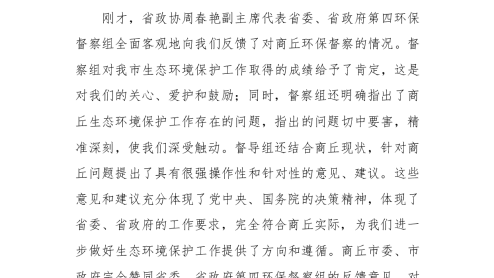 刚才，省政协周春艳副主席代表省委、省政府第四环保
督察组全面客观地向我们反馈了对商丘环保督察的情况。督
察组对我市生态环境保护工作取得的成绩给予了肯定，这是
对我们的关心、爱护和鼓励；同时，督察组还明确指出了商
丘生态环境保护工作存在的问题，指出的问题切中要害，精
准深刻，使我们深受触动。督导组还结合商丘现状，针对商
丘问题提出了具有很强操作性和针对性的意见、建议。这些
意见和建议充分体现了党中央、国务院的决策精神，体现了
省委、省政府的工作要求，完全符合商丘实际，为我们进一
步做好生态环境保护工作提供了方向和遵循。商丘市委、市
政府完全赞同省委、省政府第四环保督察组的反馈意见，对